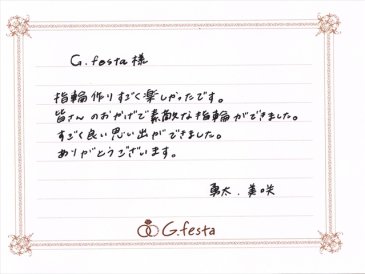 G.festa様
指輪作りすごく楽しかったです。
皆さんのおかげで素敵な指輪ができました。
すごく良い思い出ができました。
ありがとうございます。
勇太.美咲
G.festa